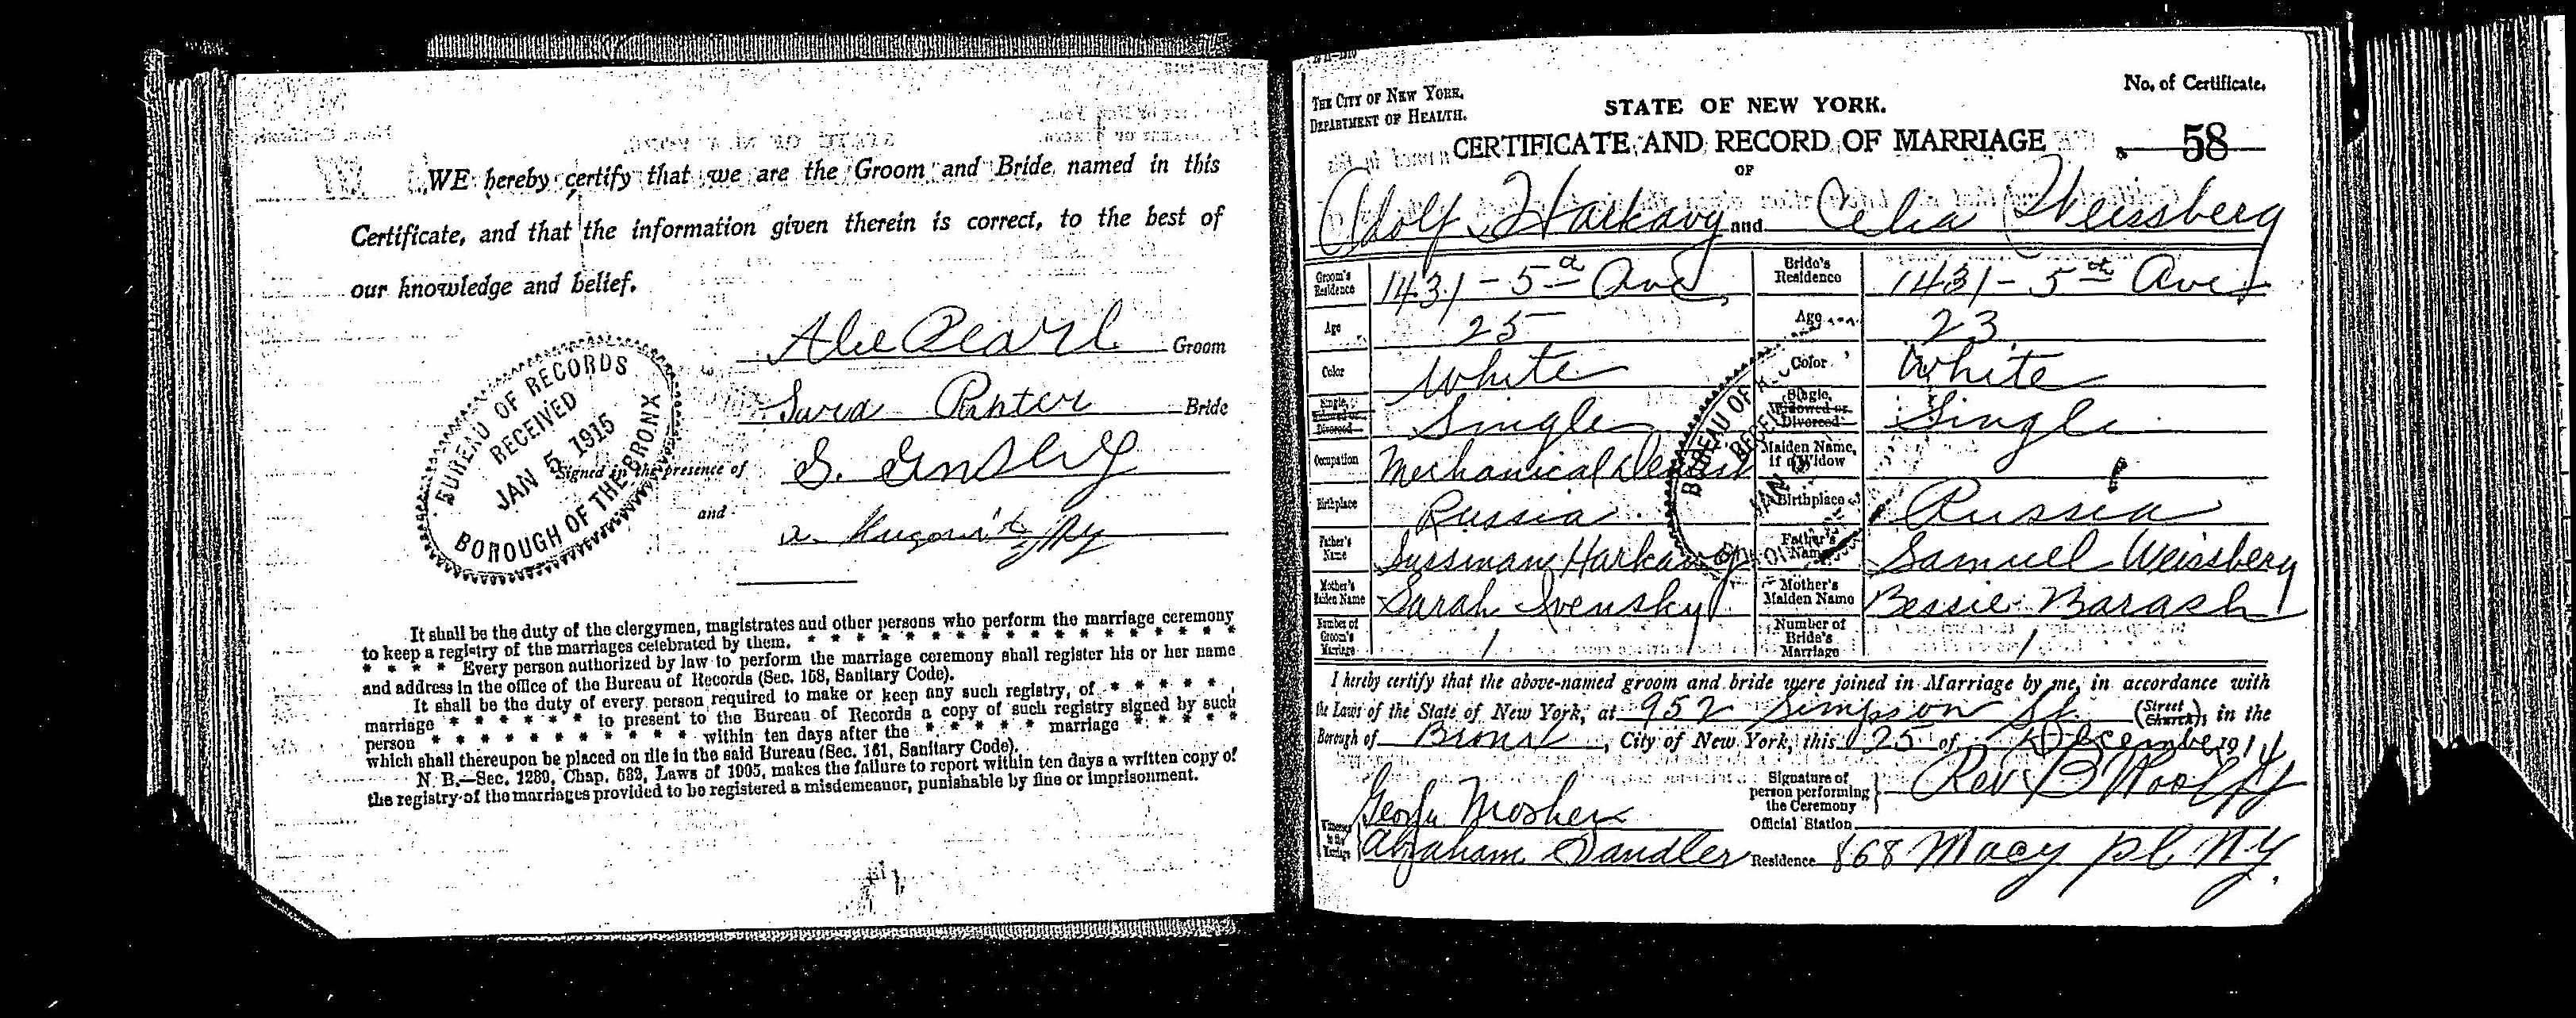 WE hereby certify that we are the Groom and Bride named in this
Certificate, and that the information given therein is correct, to the best of
our knowledge and belief.
Abe Pearl Groom
Sura Panter Bride
BUREAU OF RECORDS
RECEIVED
JAN 5 1915
BOROUGH OF THE BRONX
Signed in the presence of S.
and
It shall be the duty of the clergymen, magistrates and other persons who perform the marriage ceremony
to keep a registry of the marriages celebrated by them. * * * * * * * * * * * * * * * *
* * * * Every person authorized by law to perform the marriage ceremony shall register his or her name
and address in the office of the Bureau of Records (Sec. 158, Sanitary Code).
It shall be the duty of every person required to make or keep any such registry, of * * * * *
marriage * * * * * * to present to the Bureau of Records a copy of such registry signed by such
person * * * * * * * * * * * within ten days after the * * * * * * marriage * * * * *
which shall thereupon be placed on file in the said Bureau (Sec. 161, Sanitary Code).
N. B.—Sec. 1239, Chap. 632, Laws of 1905, makes the failure to report within ten days a written copy of
the registry of the marriages provided to be registered a misdemeanor, punishable by fine or imprisonment.
THE CITY OF NEW YORK,
DEPARTMENT OF HEALTH.
STATE OF NEW YORK.
No. of Certificate.
CERTIFICATE AND RECORD OF MARRIAGE 58
OF
Adolf Harkavy and Celia Weissberg
Groom's Residence 1431 - 5th Ave, Bride's Residence 1431 - 5th Ave
Age 25 Age 23
Color White Color White
Single, Widowed or Divorced Single Single, Widowed or Divorced Single
Occupation Mechanical Dentist Maiden Name, if a Widow
Birthplace Russia Birthplace Russia
Father's Name Sussman Harkavy Father's Name Samuel Weissberg
Mother's Maiden Name Sarah Ivensky Mother's Maiden Name Bessie Barash
Number of Groom's Marriage 1 Number of Bride's Marriage 1
BUREAU OF
I hereby certify that the above-named groom and bride were joined in Marriage by me, in accordance with
the Laws of the State of New York, at 952 Simpson St (Street Church), in the
Borough of Bronx, City of New York, this 25 of December 1914
Signature of person performing the Ceremony Rev B Woolf
George Mosher
Official Station
Witnesses to the Marriage Abraham Sandler Residence 868 Macy pl. N.Y.